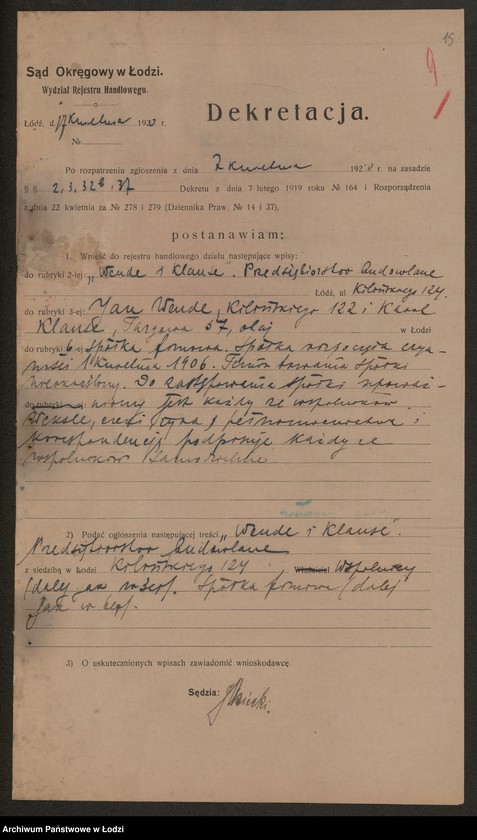 15
9
Sąd Okręgowy w Łodzi.
Wydział Rejestru Handlowego.
Łódź, d. 17 Kwietnia 1920 r.
№
Dekretacja.
Po rozpatrzeniu zgłoszenia z dnia 7 Kwietnia 1920 r. na zasadzie
§ § 2, 3, 32b, 37 Dekretu z dnia 7 lutego 1919 roku № 164 i Rozporządzenia
z dnia 22 kwietnia za № 278 i 279 (Dziennika Praw. № 14 i 37),
postanawiam:
1. Wnieść do rejestru handlowego działu następujące wpisy:
do rubryki 2-iej: „Wende i Klause”. Przedsiębiorstwo budowlane
Łódź, ul Kilińskiego 124.
do rubryki 3-ej: Jan Wende, Kilińskiego 122 i Karol
Klause, Targowa 57, obaj w Łodzi
do rubryki 6-ej Spółka firmowa. Spółka rozpoczęła czyn-
ności 1 Kwietnia 1906. Termin trwania spółki
nieokreślony. Do zastępowania spółki upoważ-
do rubryki -ej: niony jest każdy ze wspólników.
Weksle, czeki, pełnomocnictwa i
korespondencję podpisuje każdy ze
wspólników samodzielnie.
2) Podać ogłoszenia następującej treści „Wende i Klause”.
Przedsiębiorstwo budowlane
z siedzibą w Łodzi Kilińskiego 124 Właściciel Wspólnicy
(dalej jak wyżej. Spółka firmowa (dalej
jak wyżej.
3) O uskutecznionych wpisach zawiadomić wnioskodawcę.
Sędzia:
Archiwum Państwowe w Łodzi